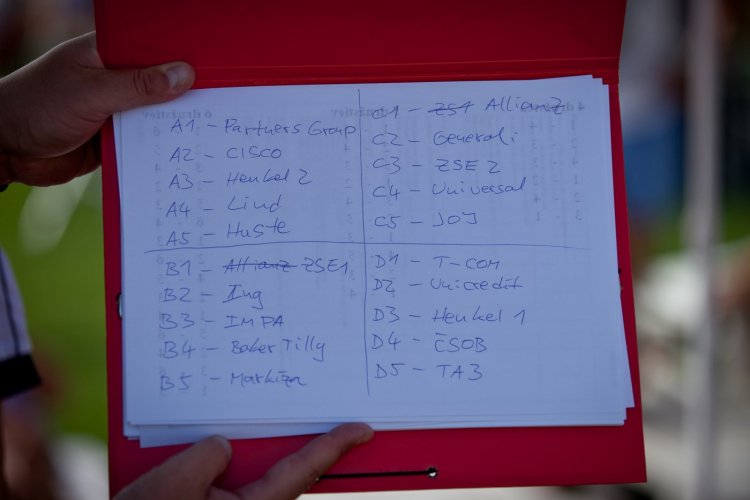 A1 - Partners Group
A2 - CISCO
A3 - Henkel 2
A4 - Lind
A5 - Huste
B1 - Allianz ZSE1
B2 - Ing
B3 - IMPA
B4 - Baker Tilly
B5 - Markíza
C1 - ZSE1 Allianz
C2 - Generali
C3 - ZSE 2
C4 - Universal
C5 - JOJ
D1 - T-COM
D2 - Unicredit
D3 - Henkel 1
D4 - ČSOB
D5 - TA3